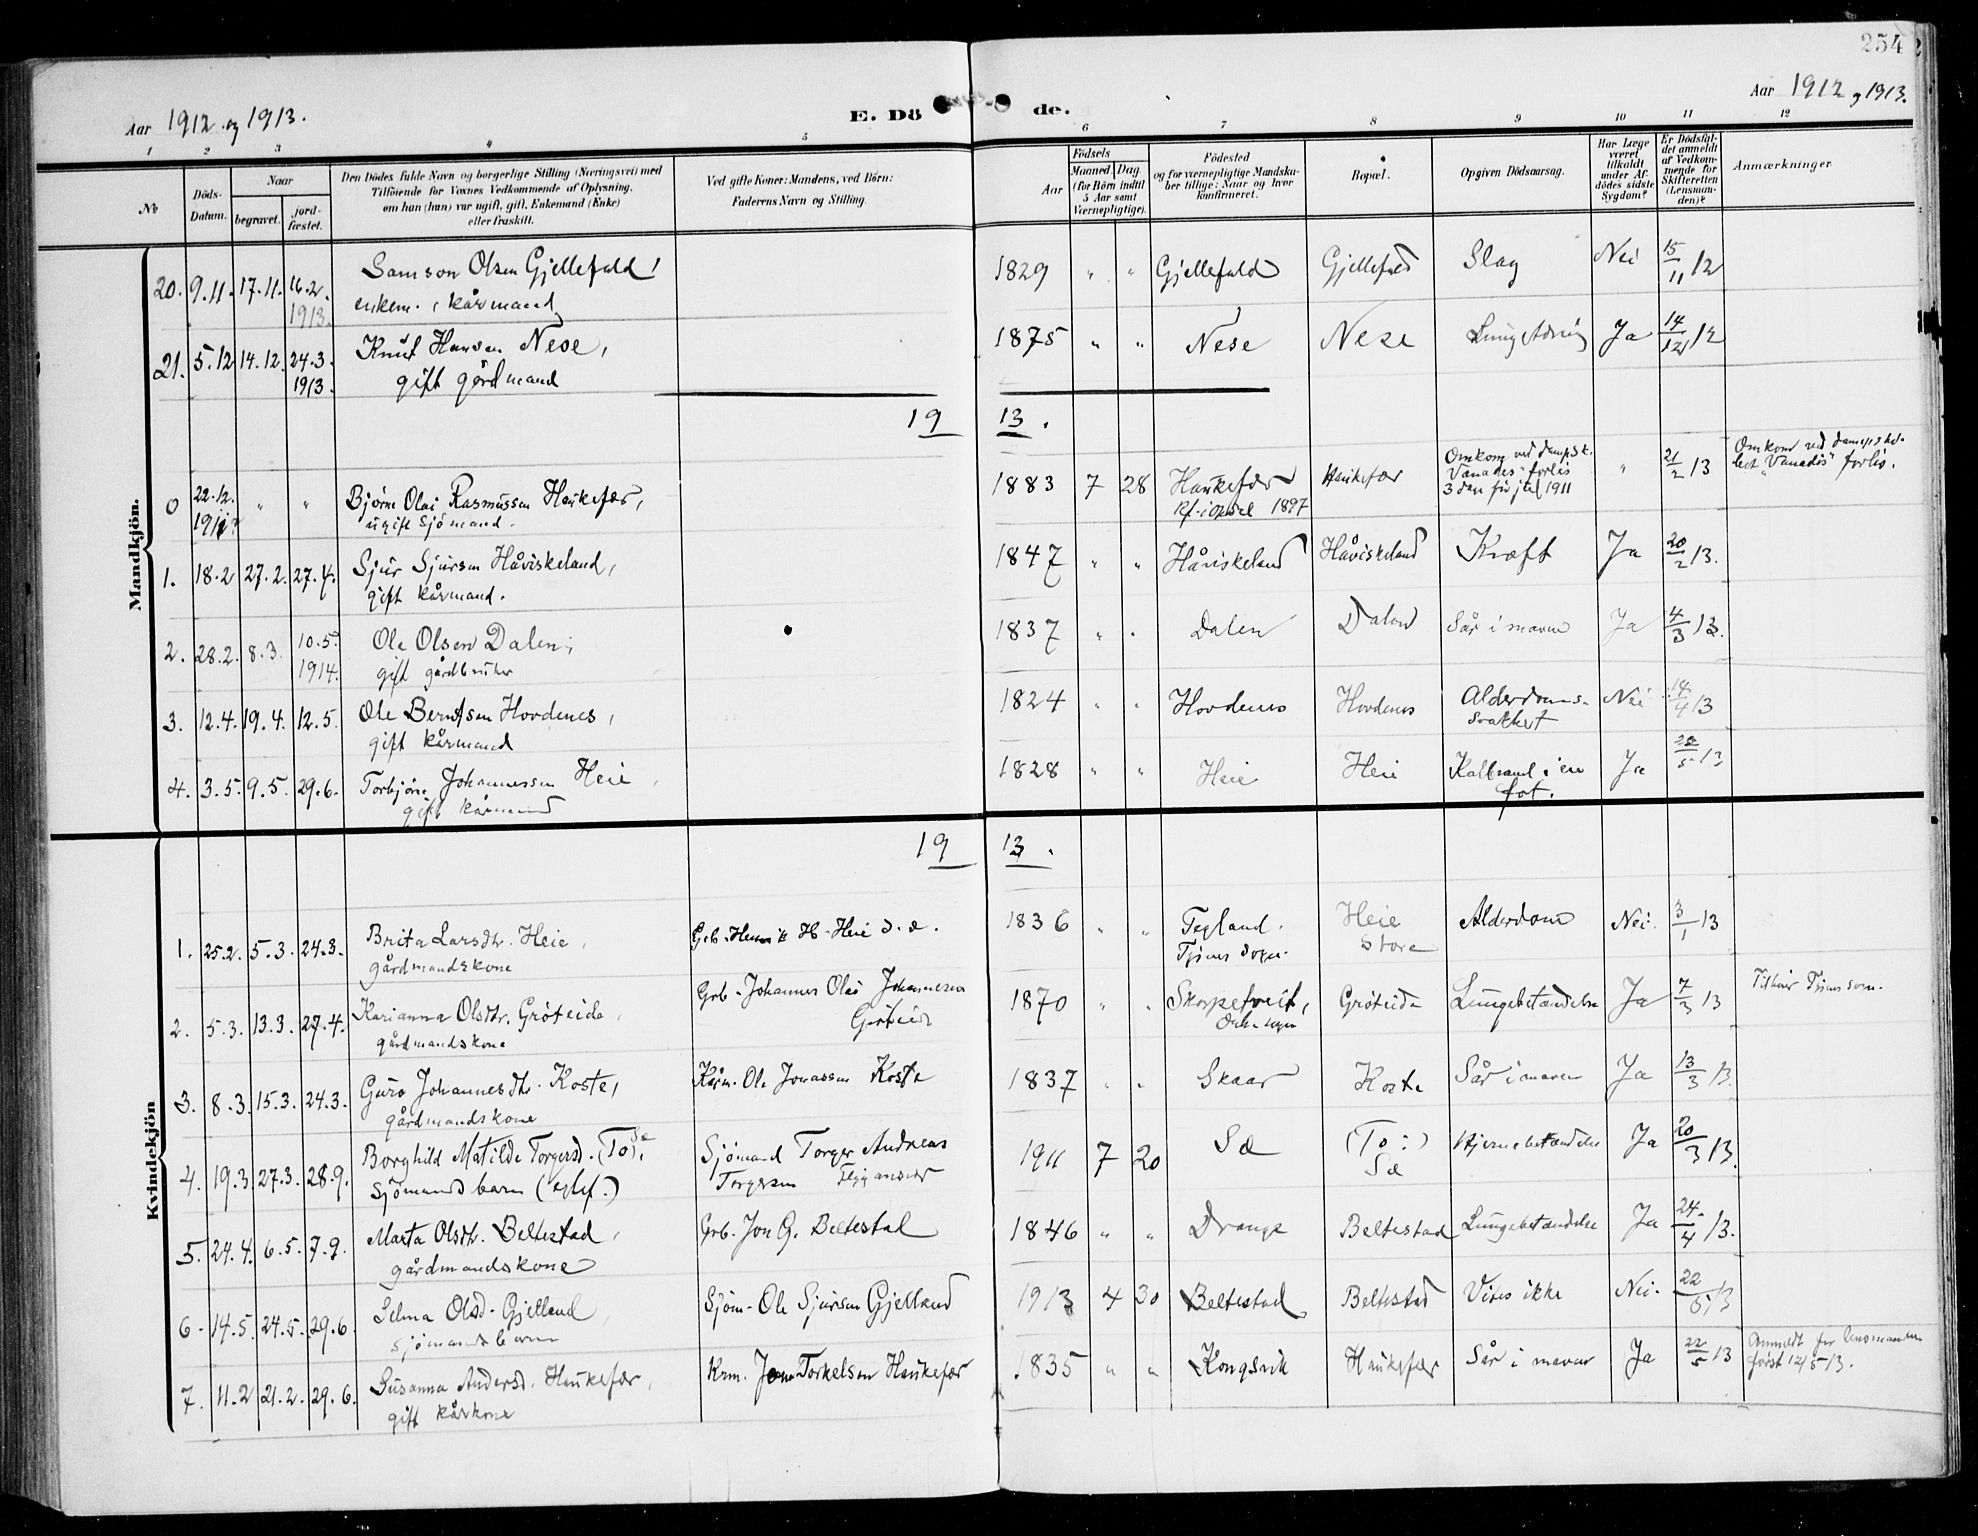 254
Aar 1912 og 1913.
E. Dö de.
Aar 1912 og 1913.
1 2 3 4 5 6 7 8 9 10 11 12
No
Döds-Datum.
Naar
begravet.
jord-fæstet.
Den Dödes fulde Navn og borgerlige Stilling (Næringsvei) med
Tilföiende for Voxnes Vedkommende af Oplysning,
om han (hun) var ugift, gift, Enkemand (Enke)
eller fraskilt.
Ved gifte Koner: Mandens, ved Börn:
Faderens Navn og Stilling.
Aar
Födsels
Maaned. Dag.
(for Börn indtil
5 Aar samt
Værnepligtige).
Födested
og for værnepligtige Mandska-
ber tillige: Naar og hvor
konfirmeret.
Bopæl.
Opgiven Dödsaarsag.
Har Læge
været
tilkaldt
under Af-
dödes sidste
Sygdom?
Er Dödsfal-
det anmeldt
af Vedkom-
mende for
Skifteretten
(Lensman-
den)?
Anmærkninger.
Mandkjön.
20. 9.11. 17.11. 16.2. 1913. Samson Olsen Gjellefald, 1829 " " Gjellefald Gjellefald Slag Nei 15/11 12
enkem., kårmand
21. 5.12 14.12. 24.3. 1913. Knut Hansen Nese, 1875 " " Nese Nese Ja 14/12 12
gift gårdmand
19 13.
0 22.12. " " Bjørn Olai Rasmussen Haukefær, 1883 7 28 Haukefær Haukefær Omkom ved dampsk. "Vanadis" forlis 3 dan før jul 1911 " 21/2 13 Omkom ved dampski-
ugift sjømand. 1897 bet "Vanadis" forlis.
1. 18.2 27.2. 27.4. Sjur Sjursen Håviskeland, 1847 " " Håviskeland Håviskeland Kræft Ja 20/2 13.
gift kårmand.
2. 28.2. 8.3. 10.5. 1914. Ole Olsen Dalen, 1837 " " Dalen Dalen Sår i maven Ja 4/3 13.
gift gårdbruker
3. 12.4. 19.4. 12.5. Ole Berntsen Hovdenes, 1824 " " Hovdenes Hovdenes Alderdoms-svakhet Nei 14/4 13
gift kårmand
4. 3.5. 9.5. 29.6. Torbjørn Johannessen Heie, 1828 " " Heie Heie Kolbrand i en fot. Ja 13
gift kårmand
Kvindekjön
19 13.
1. 25.2. 5.3. 24.3. Brita Larsdtr. Heie, Grb. Henrik H. Heie d. æ. 1836 " " Tegland. Heie Alderdom Nei. 3/1 13
gårdmandskone Store
2. 5.3. 13.3. 27.4. Karianna Olsdtr. Grøteide, Grb. Johannes Olai Johannesen Grøteide 1870 " " Skorpetveit, Grøteide Lungebetændelse Ja 7/3 13
gårdmandskone
3. 8.3. 15.3. 24.3. Guro Johannesdtr. Koste, Kårm. Ole Jonassen Koste 1837 " " Skaar Koste Sår i maven Ja 13/3 13.
gårdmandskone
4. 19.3 27.3. 28.9. Borghild Matilde Torgersd. (To), Sæ Sjømand Torger Andreas 1911 7 20 Sæ (To:) Sæ Hjernebetændelse Ja 20/3 13.
sjømands barn Torgersen
5. 24.4. 6.5. 7.9. Marta Olsdtr. Beltestad, Grb. Jon G. Beltestad 1846 " " Drange Beltestad Lungebetændelse Ja 24/4 13.
gårdmandskone
6. 14.5. 24.5. 29.6. Selma Olsd. Gjelland, Sjøm. Ole Sjursen Gjelland 1913 4 30 Beltestad Beltestad Vites ikke Nei. 22/5 13
sjømandsbarn
7. 11.2 21.2. 29.6. Susanna Andersd. Haukefær, Krm. Jon Torkelsen Haukefær 1835 " " Kongsvik Haukefær Sår i maven Ja 22/5 13 Anmeldt for lensmanden
gift kårkone først 12/5 13.